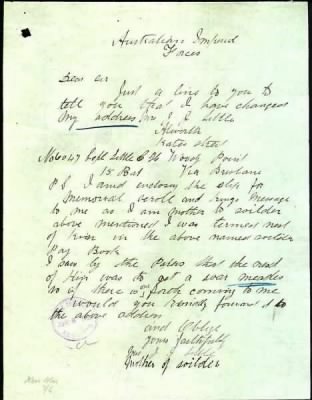 Australian Imperial
Forces
Dear Sir
Just a line to you to
tell you that I have changed
My address Mrs J Little
Alworth
Kates Street
No 6047 Little C H Wood Point
15 Bat Via Brisbane
P.S I and enclosing the slip for
Memorial scroll and Kings Message
to me as I am mother to soilder
above mentioned I was termed next
of kin in the above named soilder
Pay Book
I saw by the Papers that the next
of kin was to get a war meadle
so if there is one coming to me
would you kindly forward to
the above address
and Oblige
yours faithfully
Mrs J
mother of soilder